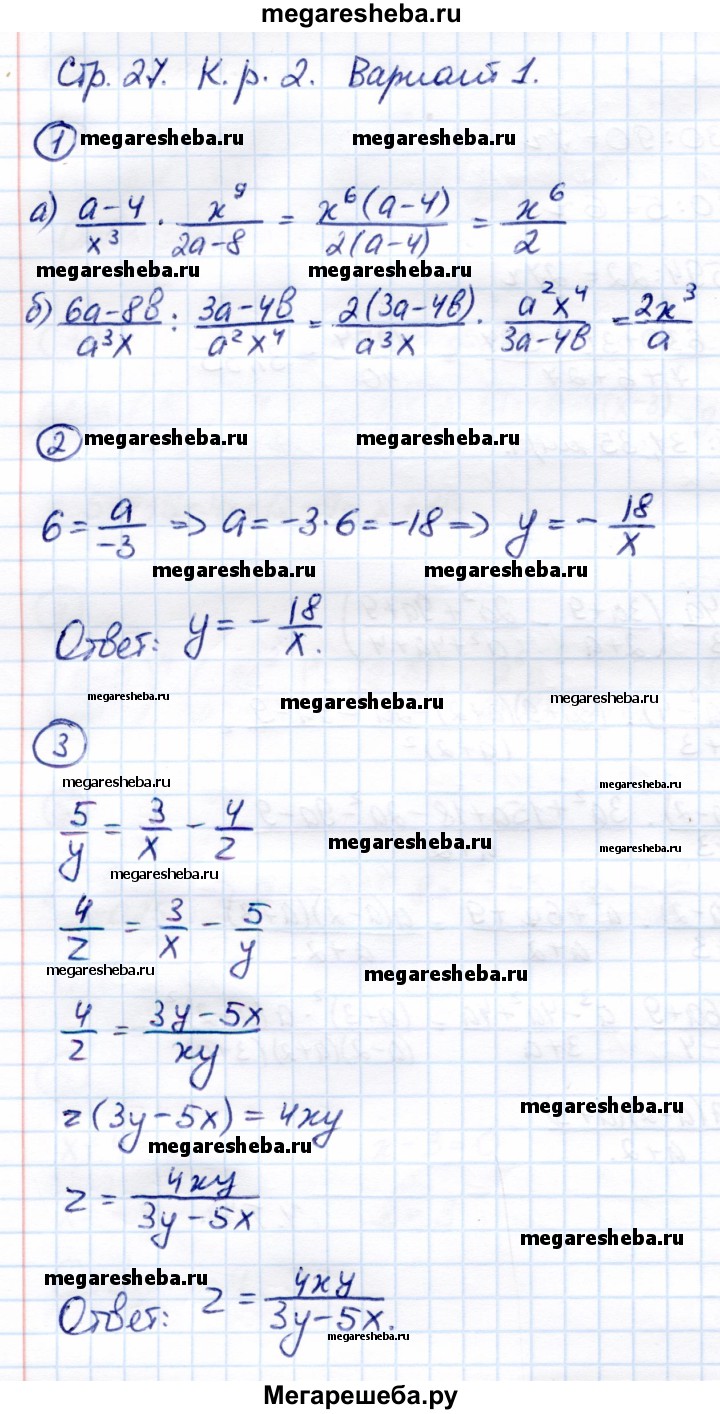 megaresheba.ru
Стр. 27. К. р. 2. Вариант 1.
1 megaresheba.ru megaresheba.ru
а) (a-4)/x³ · x⁹/(2a-8) = x⁶(a-4)/(2(a-4)) = x⁶/2
megaresheba.ru megaresheba.ru
б) (6a-8b)/(a³x) : (3a-4b)/(a²x⁴) = 2(3a-4b)/(a³x) · a²x⁴/(3a-4b) = 2x³/a
2 megaresheba.ru megaresheba.ru
6 = a/(-3) => a = -3·6 = -18 => y = - 18/x
megaresheba.ru megaresheba.ru
Ответ: y = - 18/x.
megaresheba.ru megaresheba.ru megaresheba.ru
3
megaresheba.ru megaresheba.ru
5/y = 3/x - 4/z
megaresheba.ru megaresheba.ru
megaresheba.ru
4/z = 3/x - 5/y
megaresheba.ru megaresheba.ru
4/z = (3y-5x)/(xy)
z(3y-5x) = 4xy
megaresheba.ru
megaresheba.ru
z = 4xy/(3y-5x)
megaresheba.ru
megaresheba.ru
Ответ: z = 4xy/(3y-5x).
megaresheba.ru
Мегарешеба.ру